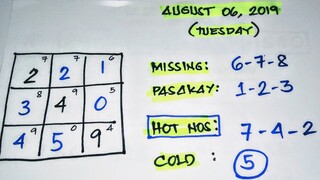 AUGUST 06, 2019
(TUESDAY)
2 7 2 7 1 6
3 8 4 9 0 5
4 9 5 0 9 4
MISSING: 6-7-8
PASAKAY: 1-2-3
HOT NOS: 7-4-2
COLD : 5